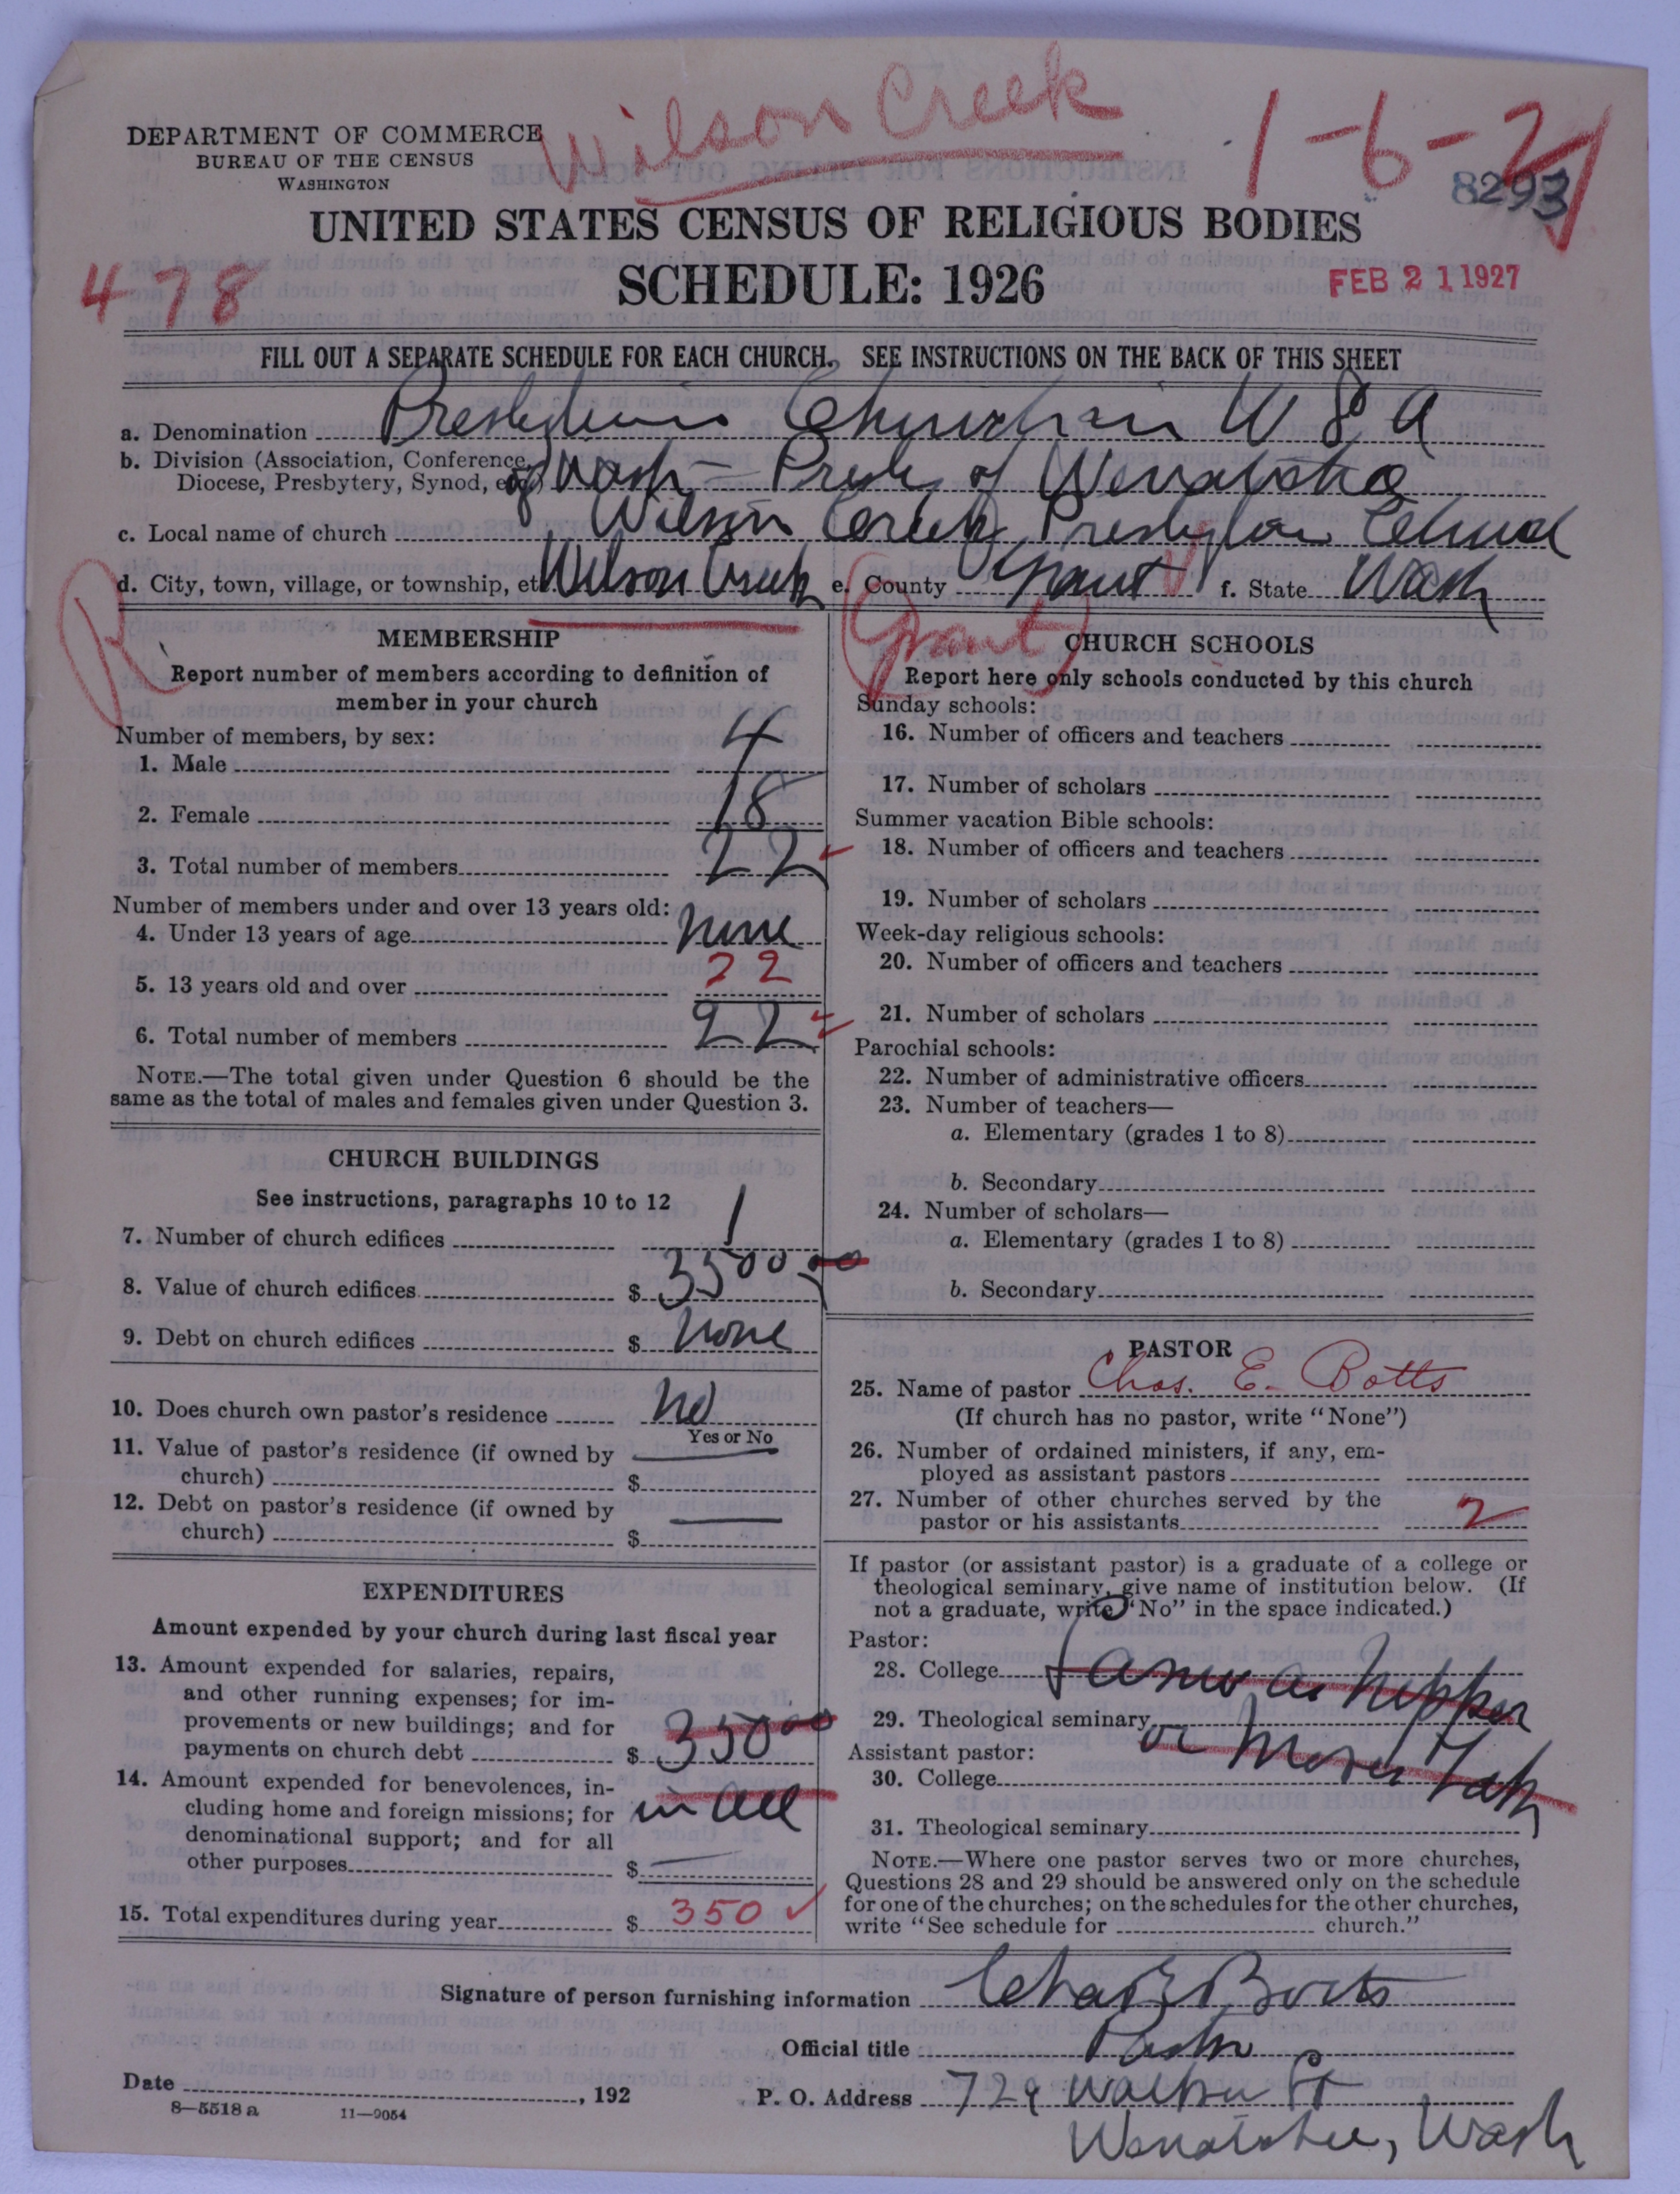 Wilson Creek
1-6-27
DEPARTMENT OF COMMERCE
BUREAU OF THE CENSUS
WASHINGTON
8293
UNITED STATES CENSUS OF RELIGIOUS BODIES
478
SCHEDULE: 1926
FEB 21 1927
FILL OUT A SEPARATE SCHEDULE FOR EACH CHURCH. SEE INSTRUCTIONS ON THE BACK OF THIS SHEET
a. Denomination Presbyterian Church in U S A
b. Division (Association, Conference,
Diocese, Presbytery, Synod, etc.) of Wash - Presby of Wenatchee
c. Local name of church Wilson Creek Presbyterian Church
d. City, town, village, or township, etc. Wilson Creek e. County Grant f. State Wash
R
Grant
MEMBERSHIP
Report number of members according to definition of
member in your church
Number of members, by sex:
1. Male 4
2. Female 18
3. Total number of members 22
Number of members under and over 13 years old:
4. Under 13 years of age none
5. 13 years old and over 22
6. Total number of members 22
NOTE.—The total given under Question 6 should be the
same as the total of males and females given under Question 3.
CHURCH BUILDINGS
See instructions, paragraphs 10 to 12
7. Number of church edifices 1
8. Value of church edifices $ 3500 00
9. Debt on church edifices $ none
10. Does church own pastor's residence No
Yes or No
11. Value of pastor's residence (if owned by
church) $
12. Debt on pastor's residence (if owned by
church) $
EXPENDITURES
Amount expended by your church during last fiscal year
13. Amount expended for salaries, repairs,
and other running expenses; for im-
provements or new buildings; and for
payments on church debt $ 350 00
14. Amount expended for benevolences, in-
cluding home and foreign missions; for in all
denominational support; and for all
other purposes $
15. Total expenditures during year $ 350
CHURCH SCHOOLS
Report here only schools conducted by this church
Sunday schools:
16. Number of officers and teachers
17. Number of scholars
Summer vacation Bible schools:
18. Number of officers and teachers
19. Number of scholars
Week-day religious schools:
20. Number of officers and teachers
21. Number of scholars
Parochial schools:
22. Number of administrative officers
23. Number of teachers—
a. Elementary (grades 1 to 8)
b. Secondary
24. Number of scholars—
a. Elementary (grades 1 to 8)
b. Secondary
PASTOR
25. Name of pastor Chas. E. Botts
(If church has no pastor, write "None")
26. Number of ordained ministers, if any, em-
ployed as assistant pastors
27. Number of other churches served by the
pastor or his assistants 2
If pastor (or assistant pastor) is a graduate of a college or
theological seminary, give name of institution below. (If
not a graduate, write "No" in the space indicated.)
Pastor:
28. College
29. Theological seminary
Assistant pastor:
30. College
31. Theological seminary
NOTE.—Where one pastor serves two or more churches,
Questions 28 and 29 should be answered only on the schedule
for one of the churches; on the schedules for the other churches,
write "See schedule for church."
Signature of person furnishing information Chas E Botts
Official title Pastor
Date , 192
P. O. Address 724 St
8—5518 a 11—9054
Wenatchee, Wash